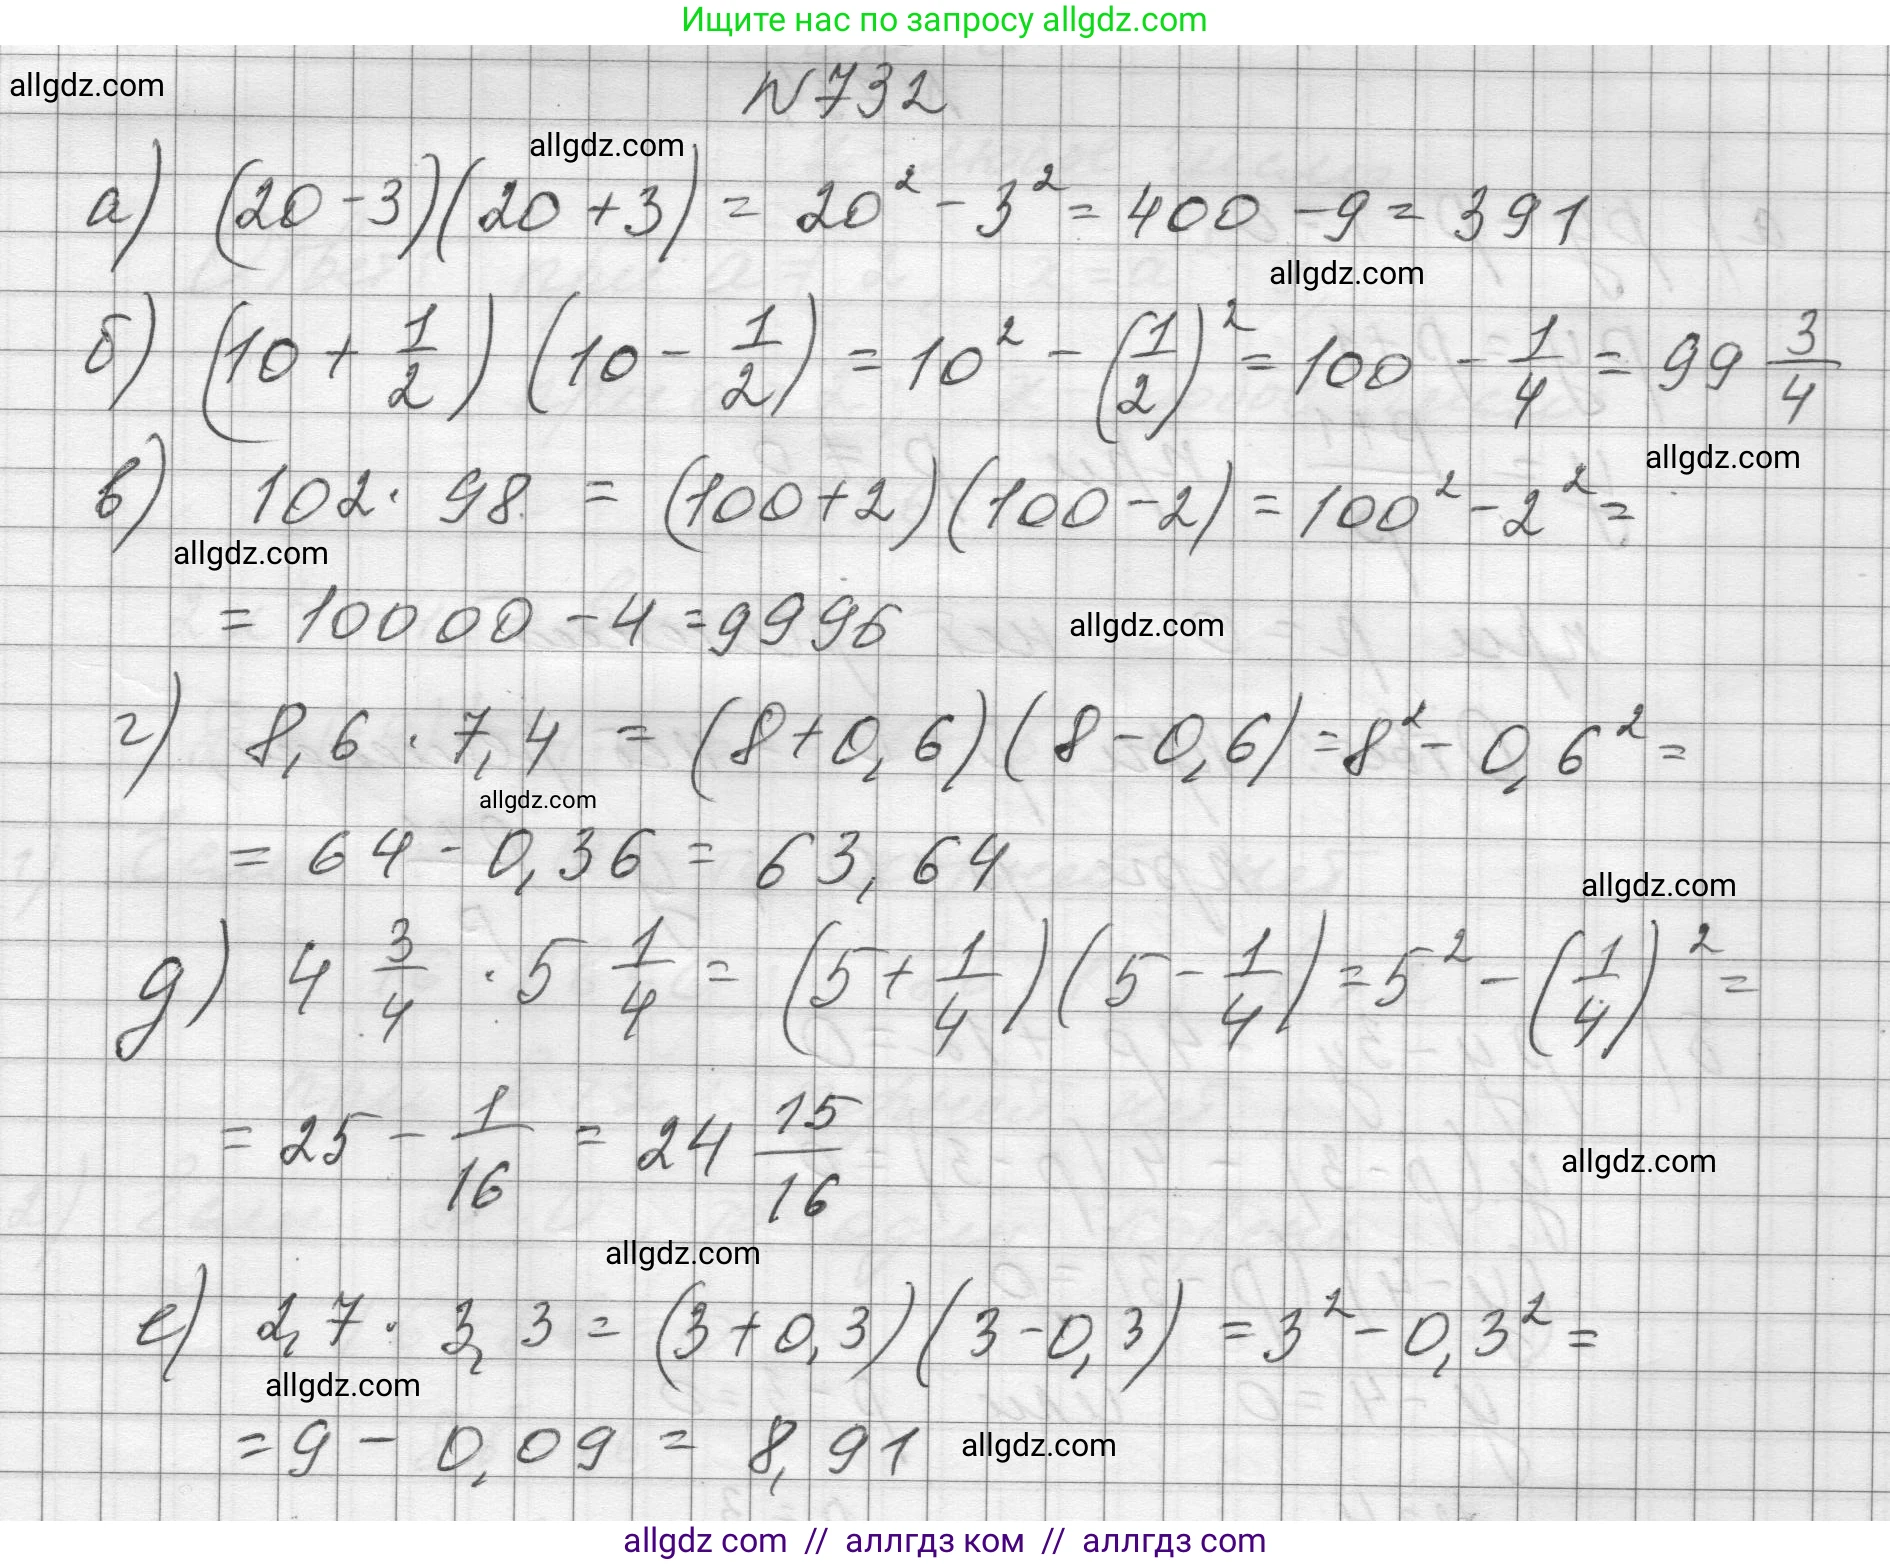 Ищите нас по запросу allgdz.com
allgdz.com
N732
allgdz.com
а) (20-3)(20+3) = 20² - 3² = 400 - 9 = 391
allgdz.com
б) (10 + 1/2)(10 - 1/2) = 10² - (1/2)² = 100 - 1/4 = 99 3/4
allgdz.com
в) 102 · 98 = (100+2)(100-2) = 100² - 2² =
allgdz.com
= 10000 - 4 = 9996
allgdz.com
г) 8,6 · 7,4 = (8+0,6)(8-0,6) = 8² - 0,6² =
allgdz.com
= 64 - 0,36 = 63,64
allgdz.com
д) 4 3/4 · 5 1/4 = (5 + 1/4)(5 - 1/4) = 5² - (1/4)² =
= 25 - 1/16 = 24 15/16
allgdz.com
allgdz.com
е) 2,7 · 3,3 = (3+0,3)(3-0,3) = 3² - 0,3² =
allgdz.com
= 9 - 0,09 = 8,91
allgdz.com
allgdz com // аллгдз ком // аллгдз com